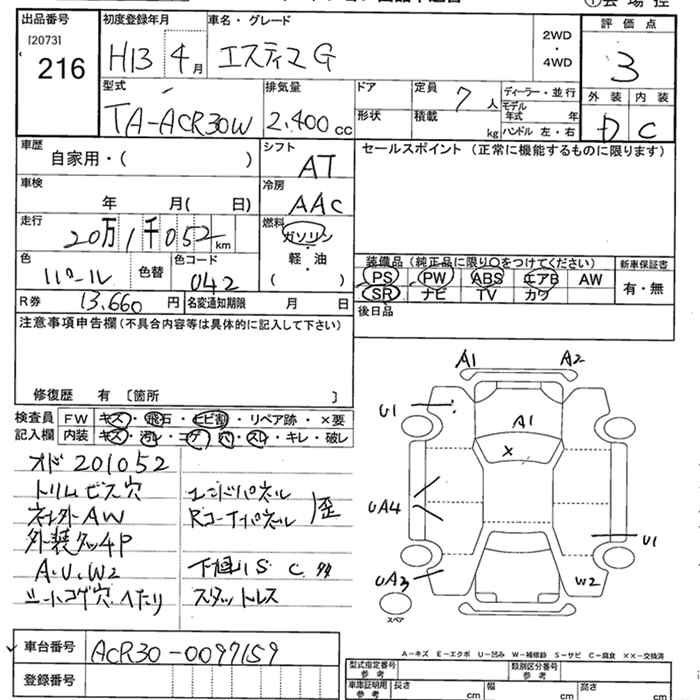 出品番号 初度登録年月 車名・グレード 2WD・4WD 評価点
[2073] 216 H13 4月 エスティマG 3
外装 内装
D C
型式 排気量 ドア 定員 7人 ディーラー・並行
TA-ACR30W 2.400cc 形状 積載 kg モデル年式 年
ハンドル 左・右
車歴 自家用・( ) シフト AT セールスポイント(正常に機能するものに限ります)
車検 年 月( 日) 冷房 AAC
走行 20万1千052km 燃料 ガソリン・軽油 ( )
色 パール 色替 色コード 042
装備品(純正品に限り○をつけてください) 新車保証書
PS PW ABS エアB AW 有・無
SR ナビ TV カワ
R券 13,660円 名変通知期限 月 日
後日品
注意事項申告欄(不具合内容等は具体的に記入して下さい)
修復歴 有 [箇所 ]
検査員 FW キズ・飛石・ヒビ割・リペア跡・×要
記入欄 内装 キズ・汚れ・コゲ・穴・スレ・キレ・破レ
オド 201052
トリムビス穴 エンドパネル
社外AW Rコーナパネル 歪
外装キズ4P
A.U.W2 下廻りS C 多
シートコゲ穴.ヘたり スタットレス
A1 A2
U1 A1
X
UA4 U1
UA3 W2
スペア
A-キズ E-エクボ U-凹み W-補修跡 S-サビ C-腐食 ××-交換済
車台番号 ACR30-0097159
登録番号
型式指定番号 参考 類別区分番号 参考
車庫証明用 参考 長さ cm 幅 cm 高さ cm